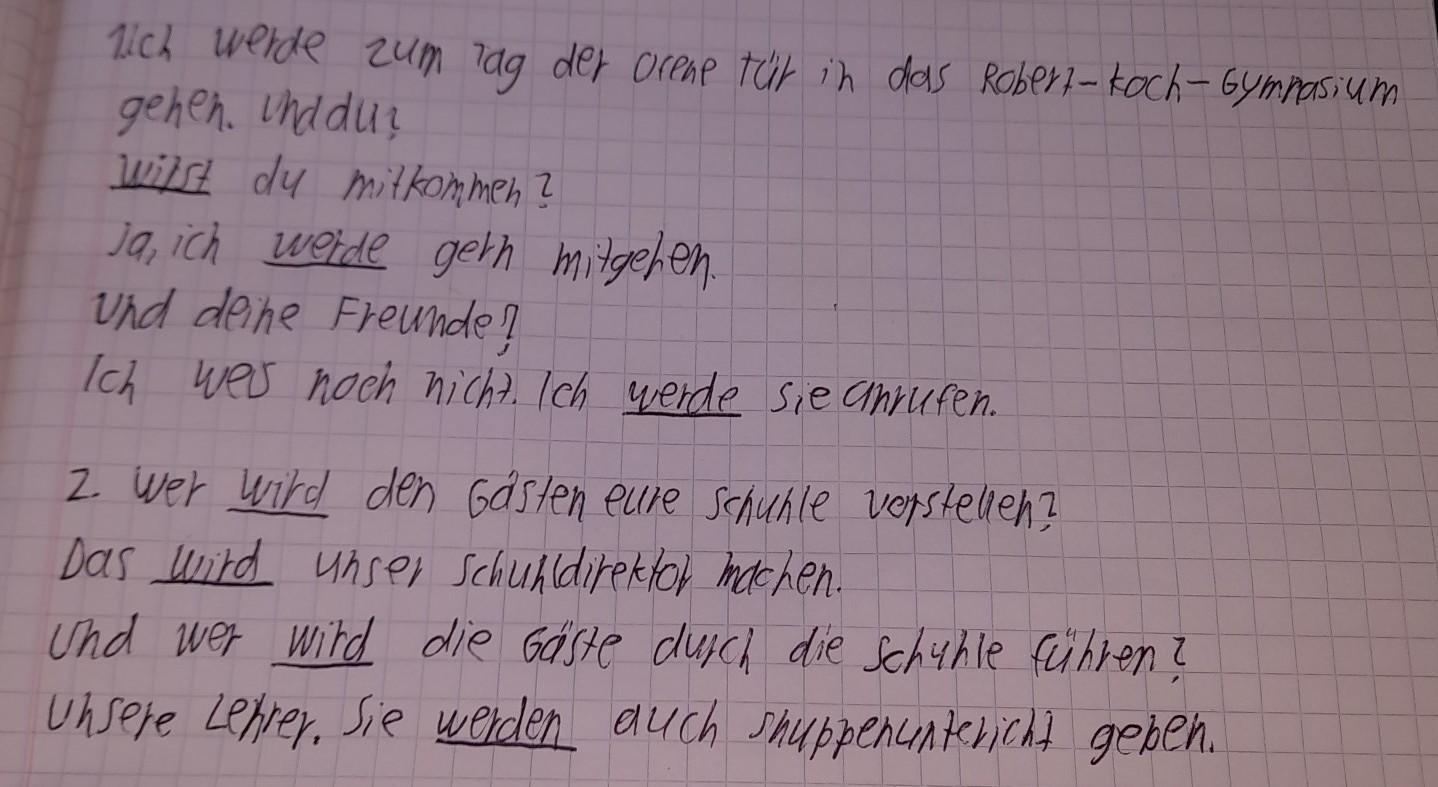 1 ich werde zum Tag der ofene tür in das Robert-koch-Gymnasium
gehen. Und du?
wilst du mitkommen?
ja, ich werde gern mitgehen.
und deine Freunde?
Ich wes noch nicht. Ich werde sie anrufen.
2. wer wird den Gästen eure schuhle vorstellen?
Das wird unser schuhldirektor machen.
Und wer wird die Gäste durch die schuhle führen?
Unsere Lehrer. Sie werden auch snuppenuntericht geben.